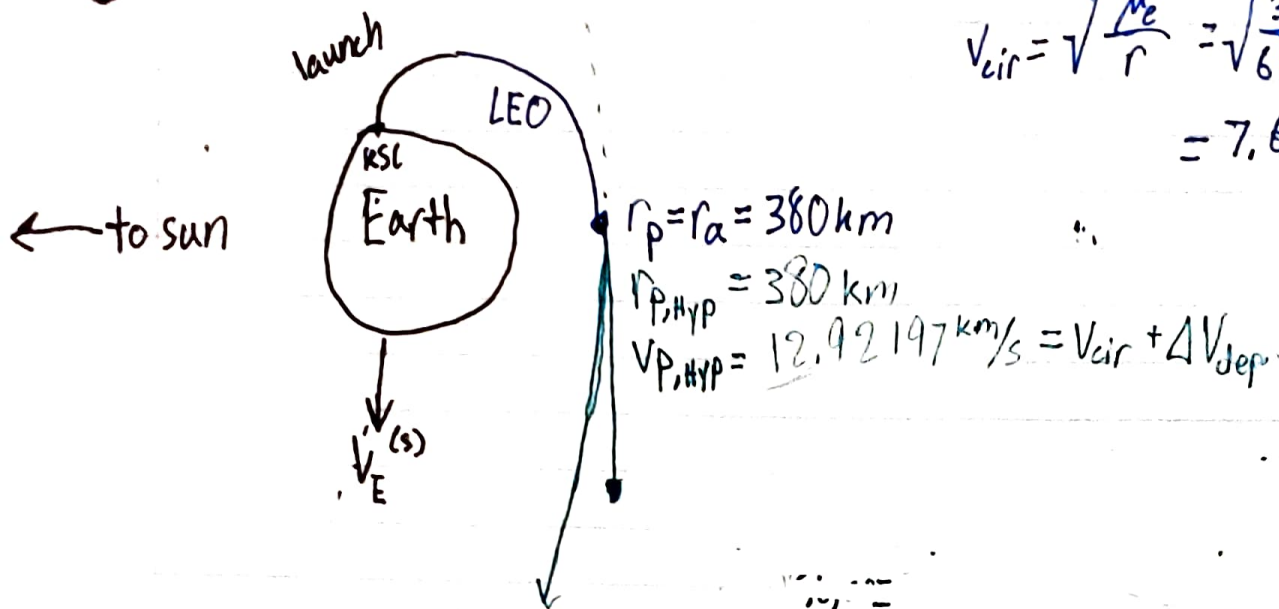 launch
LEO
KSC
Earth
← to sun
V_E^(s)
r_p = r_a = 380 km
r_p,Hyp = 380 km
V_p,Hyp = 12.92197 km/s = V_cir + ΔV_dep
V_cir = √(μ_e/r) = √
= 7.